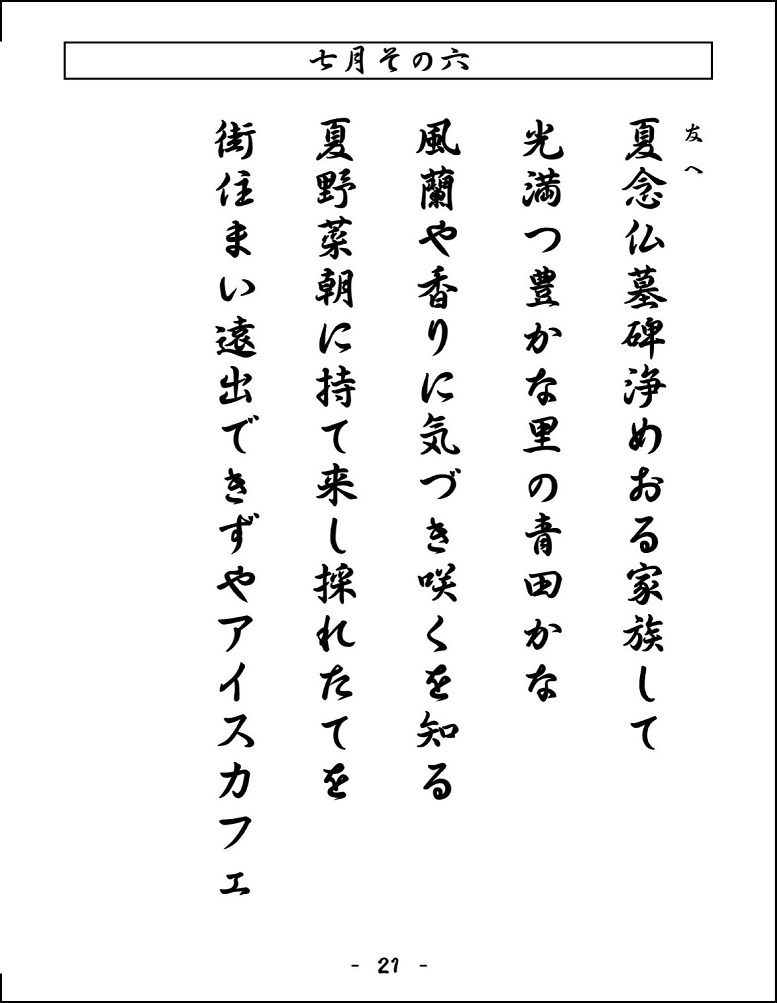 七月その六
友へ
夏念仏墓碑浄めおる家族して
光満つ豊かな里の青田かな
風蘭や香りに気づき咲くを知る
夏野菜朝に持て来し採れたてを
街住まい遠出できずやアイスカフェ
- 21 -